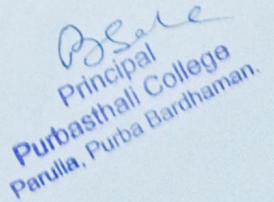 Principal
Purbasthali College
Parulla, Purba Bardhaman.